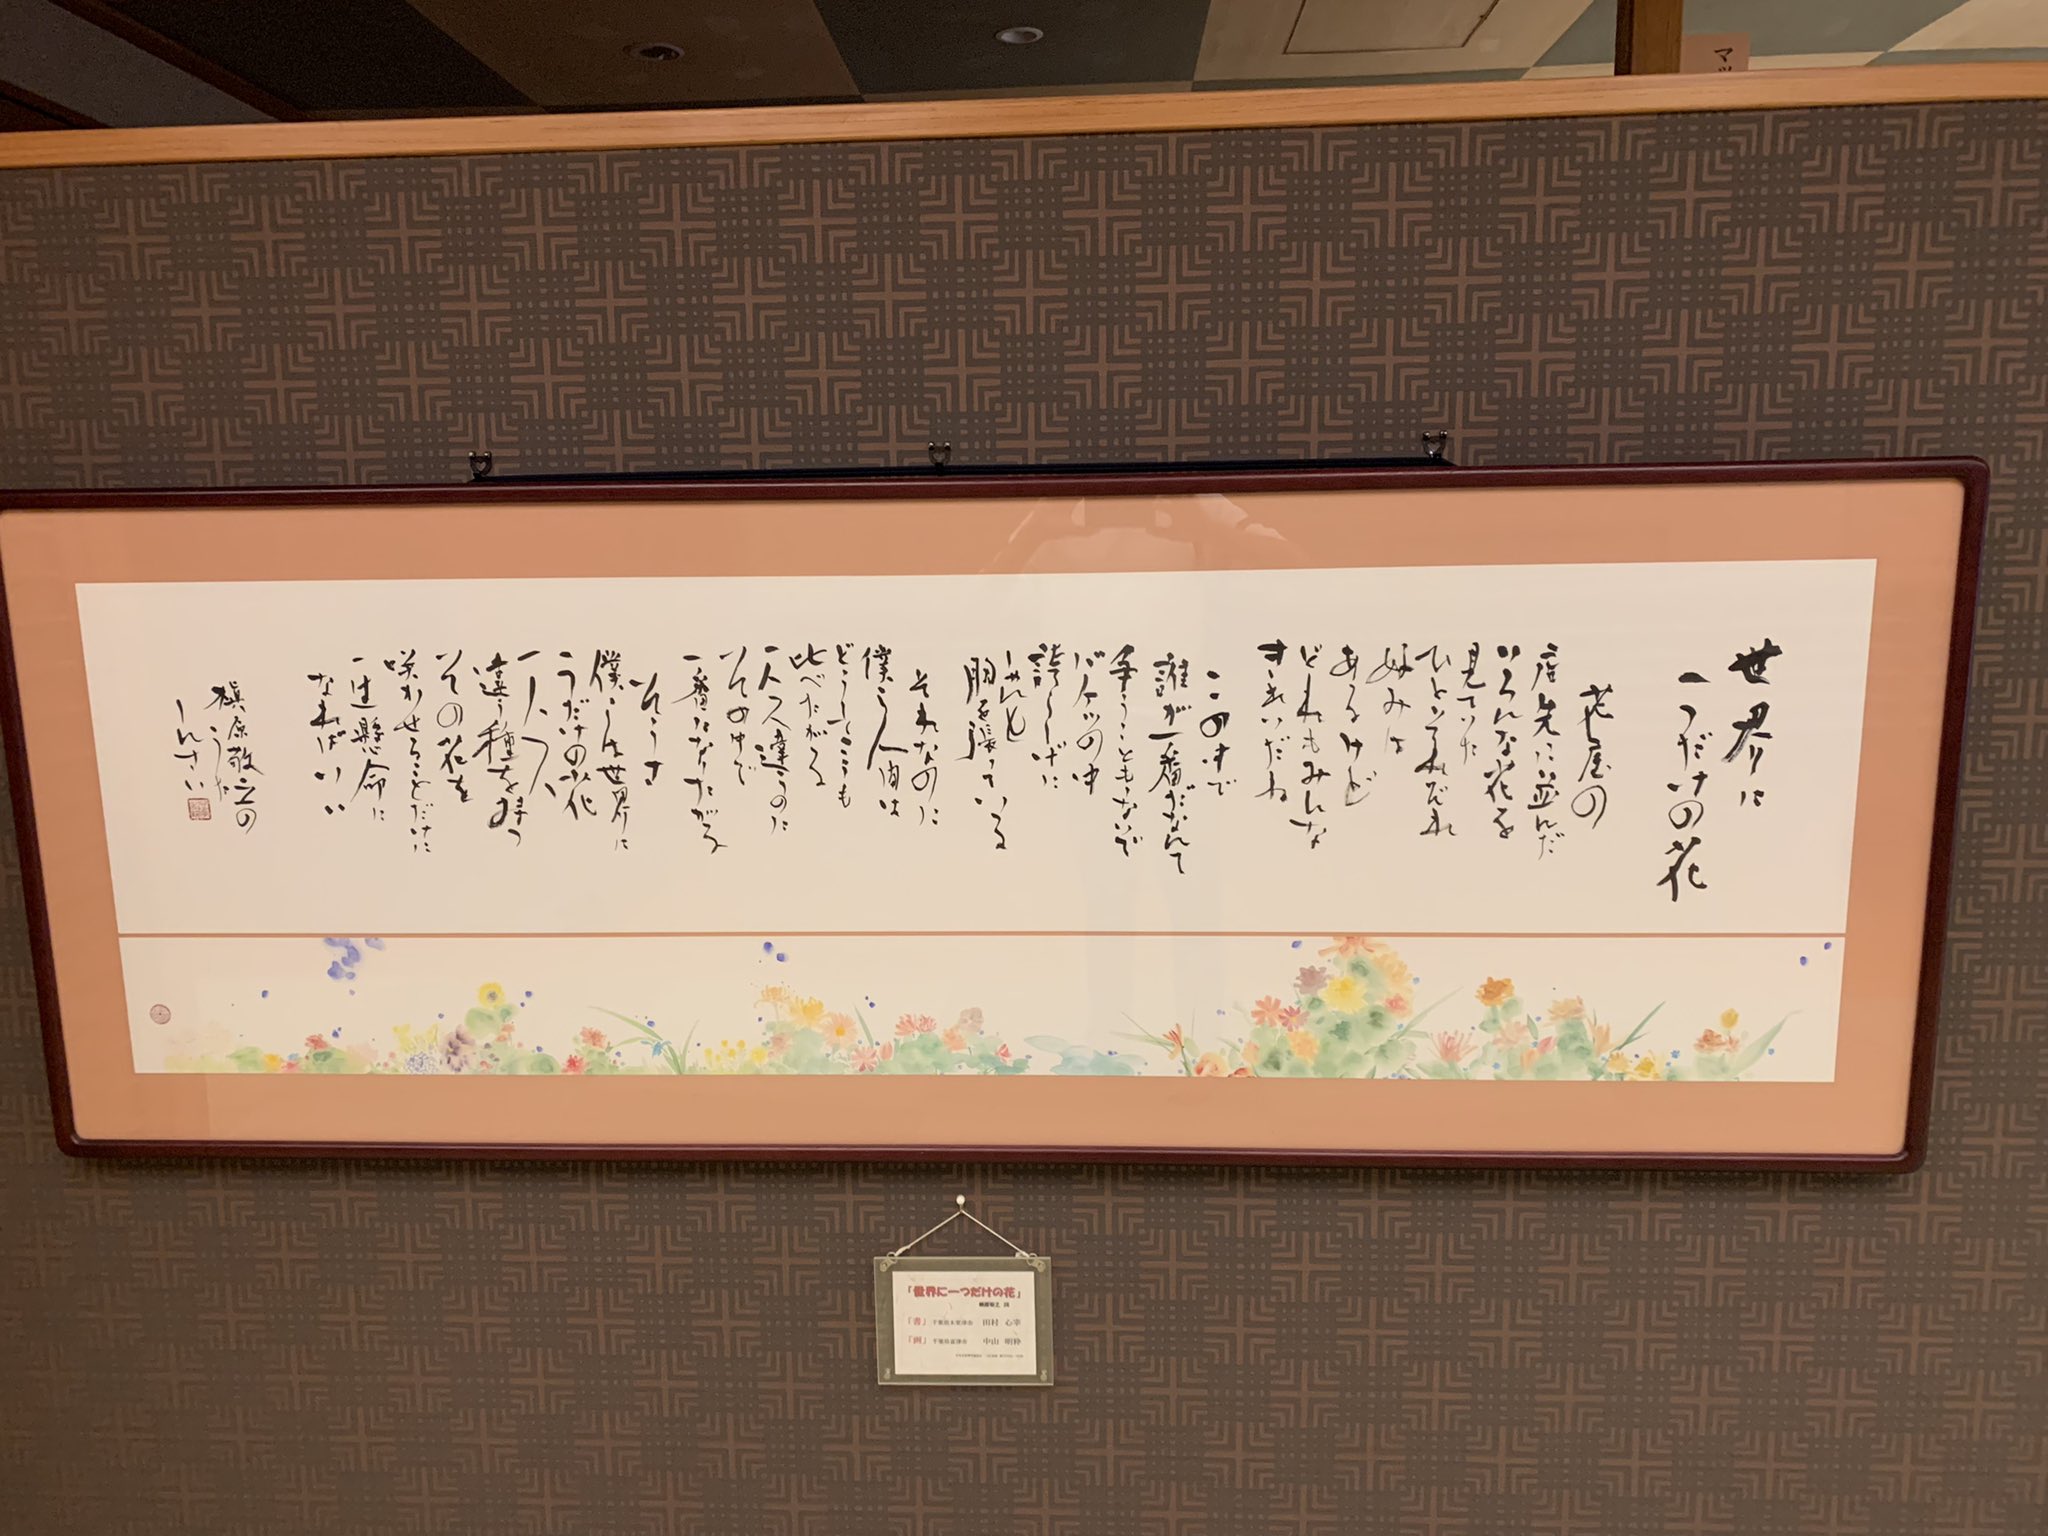 マッ
世界に
一つだけの花
花屋の
店先に並んだ
いろんな花を
見ていた
ひとそれぞれ
好みは
あるけど
どれもみんな
きれいだね
この中で
誰が一番だなんて
争うこともしないで
バケツの中
誇らしげに
しゃんと
胸を張っている
それなのに
僕ら人間は
どうしてこうも
比べたがる
一人〱違うのに
その中で
一番になりたがる
そうさ
僕らは世界に
一つだけの花
一人〱
違う種を持つ
その花を
咲かせることだけに
一生懸命に
なればいい
槇原敬之の
うた
しんさい
「世界に一つだけの花」
槇原敬之 詞
「書」 千葉県木更津市 田村 心幸
「画」 千葉県富津市 中山 明粋